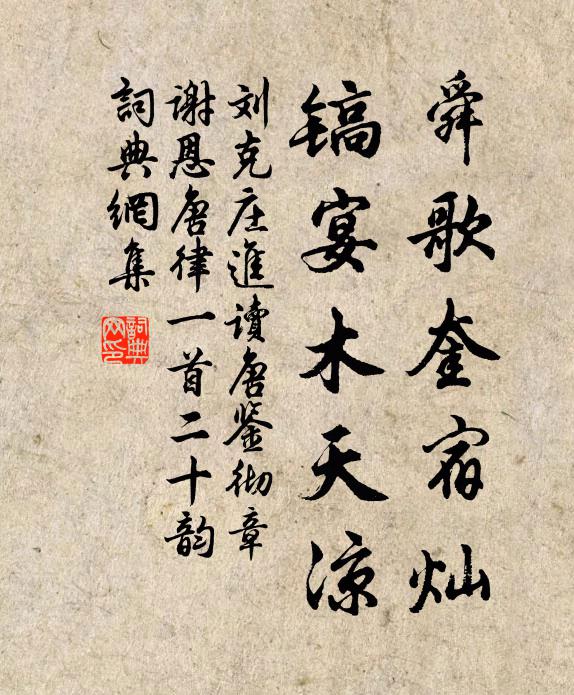 舜歌奎宿灿
镐宴木天凉
刘克庄進讀唐鉴彻章
谢恩唐律一首二十韵
詞典網集
詞典
网印